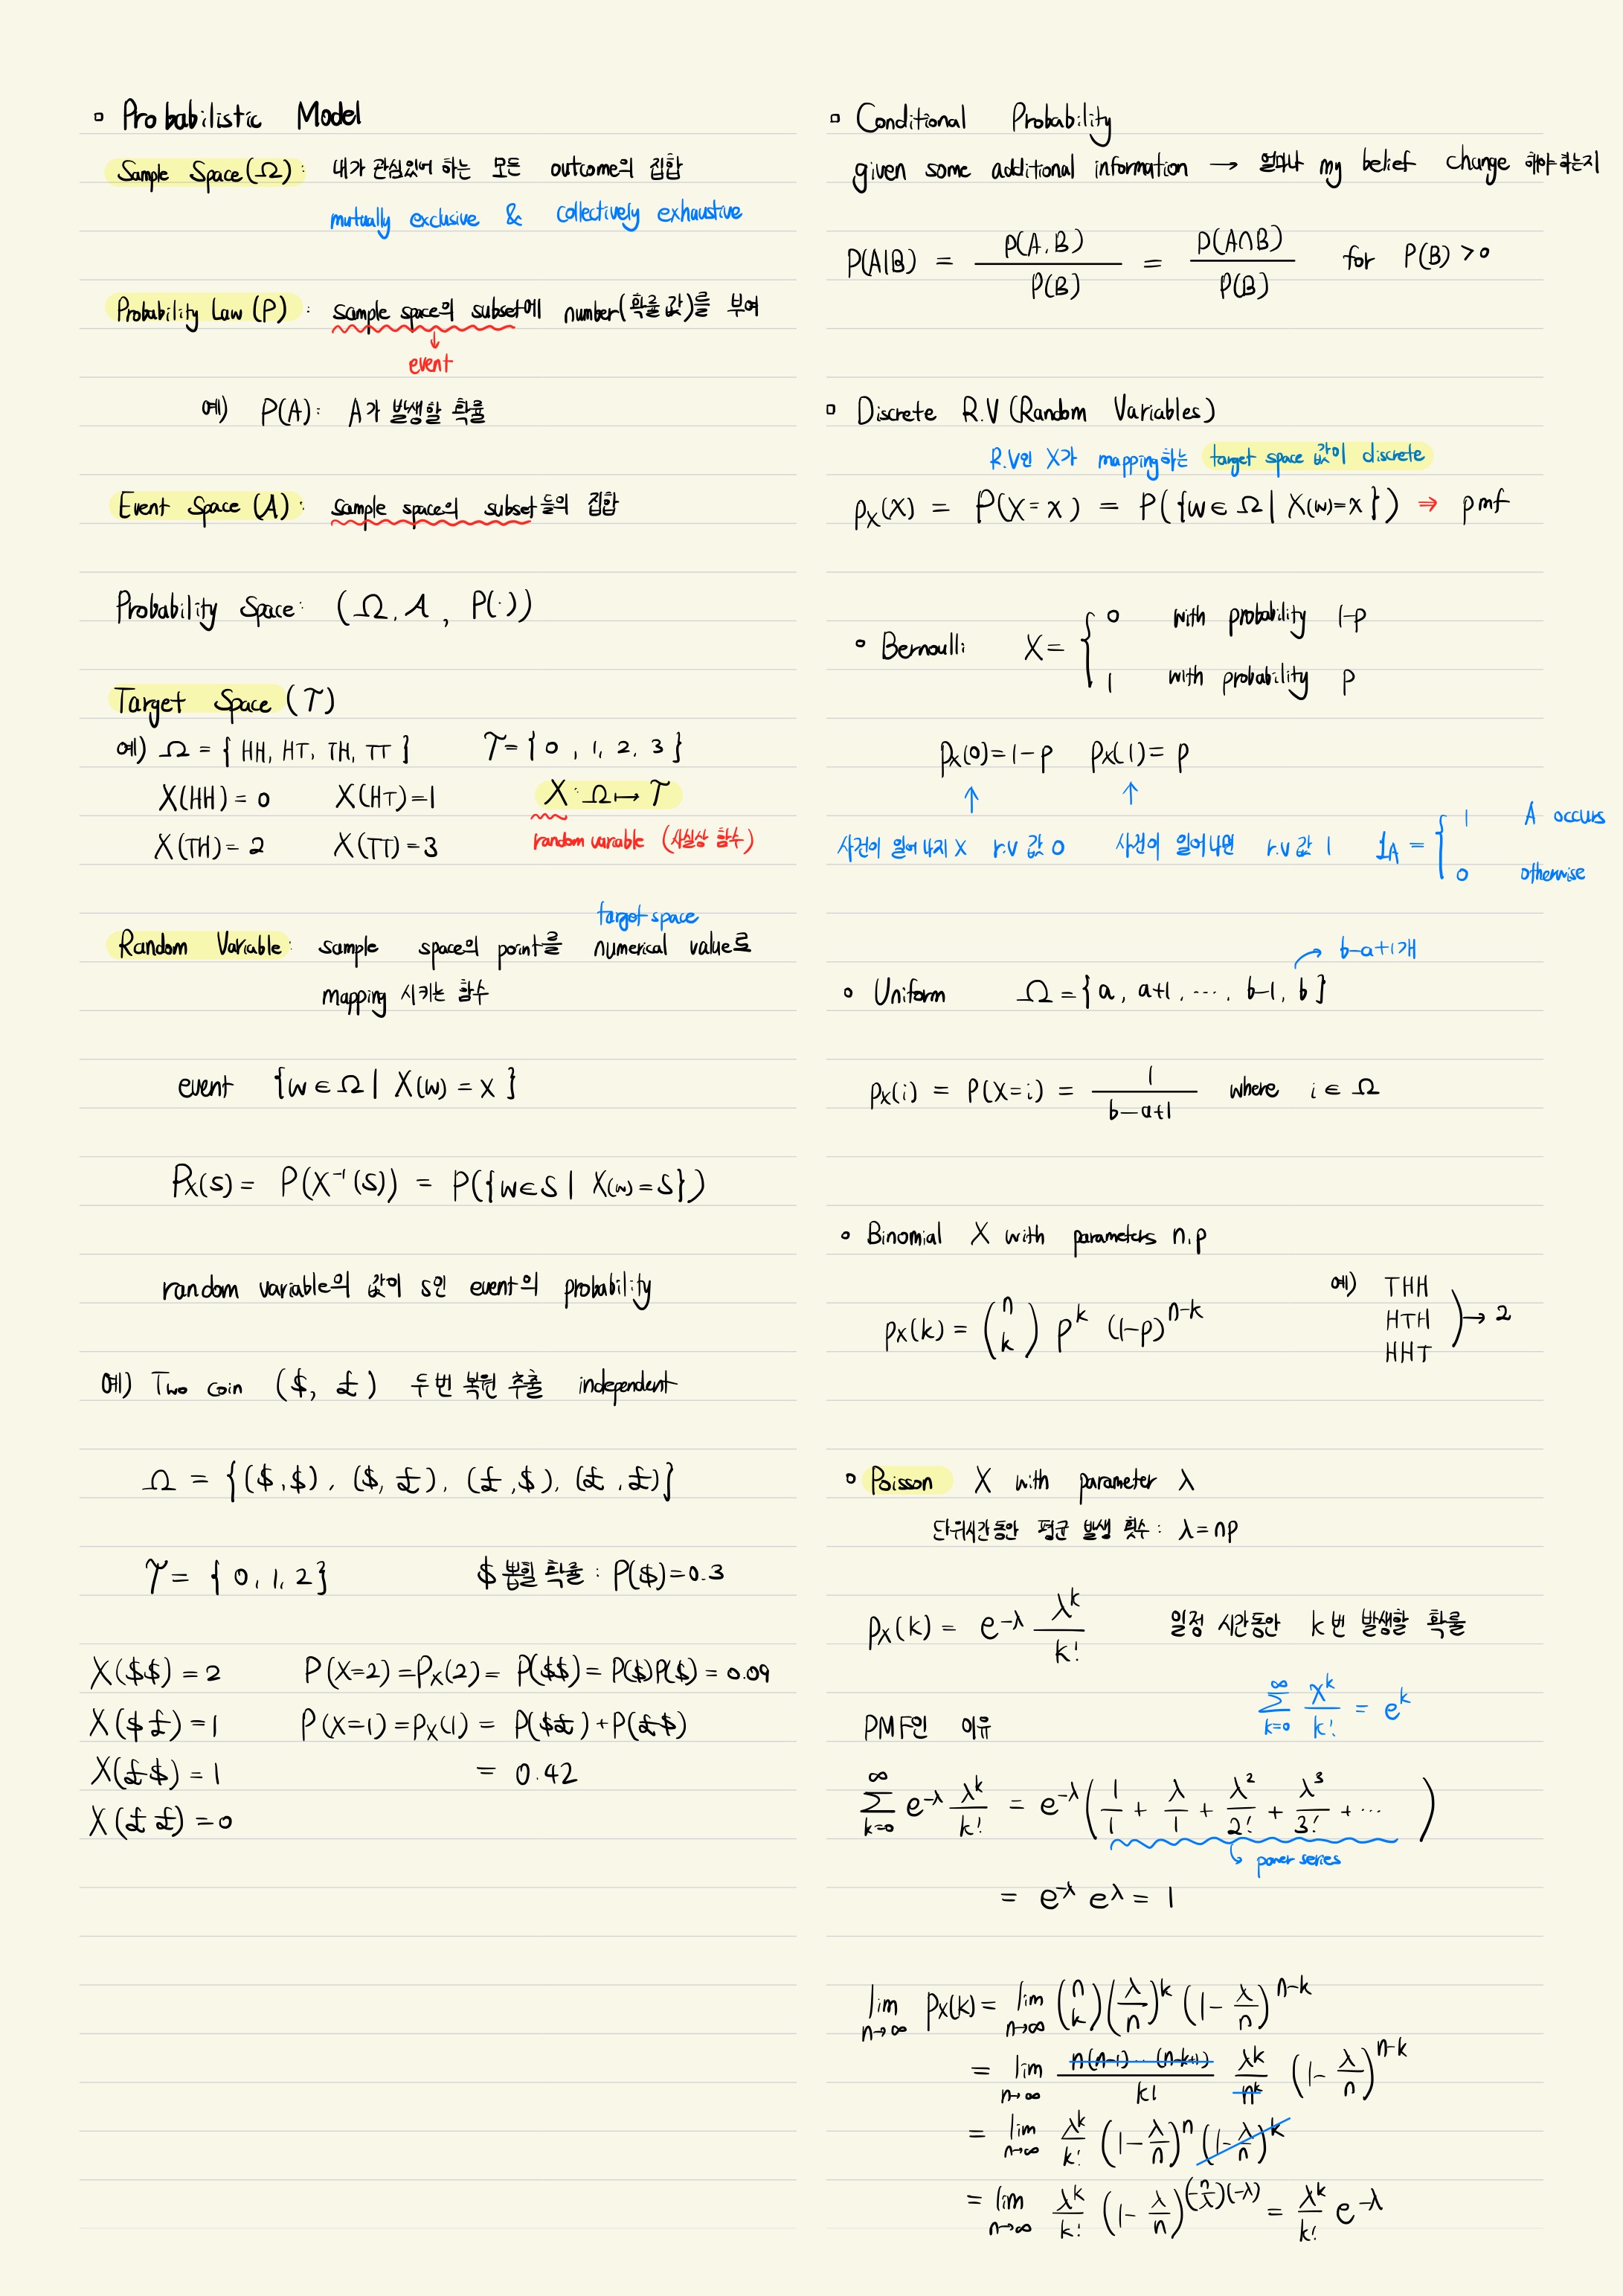 ▫ Probabilistic Model
Sample Space(Ω): 내가 관심있어 하는 모든 outcome의 집합
mutually exclusive & collectively exhaustive
Probability Law (P): sample space의 subset에 number(확률 값)를 부여
↓
event
예) P(A): A가 발생할 확률
Event Space (A): sample space의 subset들의 집합
Probability Space: (Ω, A, P(·))
Target Space (T)
예) Ω = { HH, HT, TH, TT } T = { 0, 1, 2, 3 }
X(HH) = 0 X(HT) = 1 X: Ω ↦ T
X(TH) = 2 X(TT) = 3 random variable (사실상 함수)
target space
Random Variable: sample space의 point를 numerical value로
mapping 시키는 함수
event {w ∈ Ω | X(w) = x }
P_X(S) = P(X⁻¹(S)) = P({w∈S | X(w) = S})
random variable의 값이 S인 event의 probability
예) Two coin ($, £) 두 번 복원 추출 independent
Ω = {($,$), ($,£), (£,$), (£,£)}
T = { 0, 1, 2 } $ 뽑힐 확률: P($) = 0.3
X($$) = 2 P(X=2) = P_X(2) = P($$) = P($)P($) = 0.09
X($£) = 1 P(X=1) = P_X(1) = P($£) + P(£$)
X(£$) = 1 = 0.42
X(££) = 0
▫ Conditional Probability
given some additional information → 얼마나 my belief change 해야 하는지
P(A|B) = P(A,B) / P(B) = P(A∩B) / P(B) for P(B) > 0
▫ Discrete R.V (Random Variables)
R.V인 X가 mapping하는 target space 값이 discrete
p_X(X) = P(X=x) = P({w ∈ Ω | X(w)=x}) ⇒ pmf
∘ Bernoulli X = { 0 with probability 1-p
1 with probability p
p_X(0) = 1-p p_X(1) = p
↑ ↑
사건이 일어나지 X r.v 값 0 사건이 일어나면 r.v 값 1 1_A = { 1 A occurs
0 otherwise
b-a+1개
∘ Uniform Ω = { a, a+1, ···, b-1, b }
p_X(i) = P(X=i) = 1 / (b-a+1) where i ∈ Ω
∘ Binomial X with parameters n,p
p_X(k) = (n k) p^k (1-p)^(n-k) 예) THH
HTH → 2
HHT
∘ Poisson X with parameter λ
단위시간동안 평균 발생 횟수: λ = np
p_X(k) = e^(-λ) λ^k / k! 일정 시간동안 k번 발생할 확률
PMF인 이유 ∑_{k=0}^{∞} λ^k / k! = e^k
∑_{k=0}^{∞} e^(-λ) λ^k / k! = e^(-λ) ( 1/1 + λ/1 + λ²/2! + λ³/3! + ··· )
power series
= e^(-λ) e^λ = 1
lim_{n→∞} p_X(k) = lim_{n→∞} (n k) (λ/n)^k (1 - λ/n)^(n-k)
= lim_{n→∞} n(n-1)···(n-k+1) / k! λ^k / n^k (1 - λ/n)^(n-k)
= lim_{n→∞} λ^k / k! (1 - λ/n)^n (1 - λ/n)^k
= lim_{n→∞} λ^k / k! (1 - λ/n)^((-n/λ)(-λ)) = λ^k / k! e^(-λ)